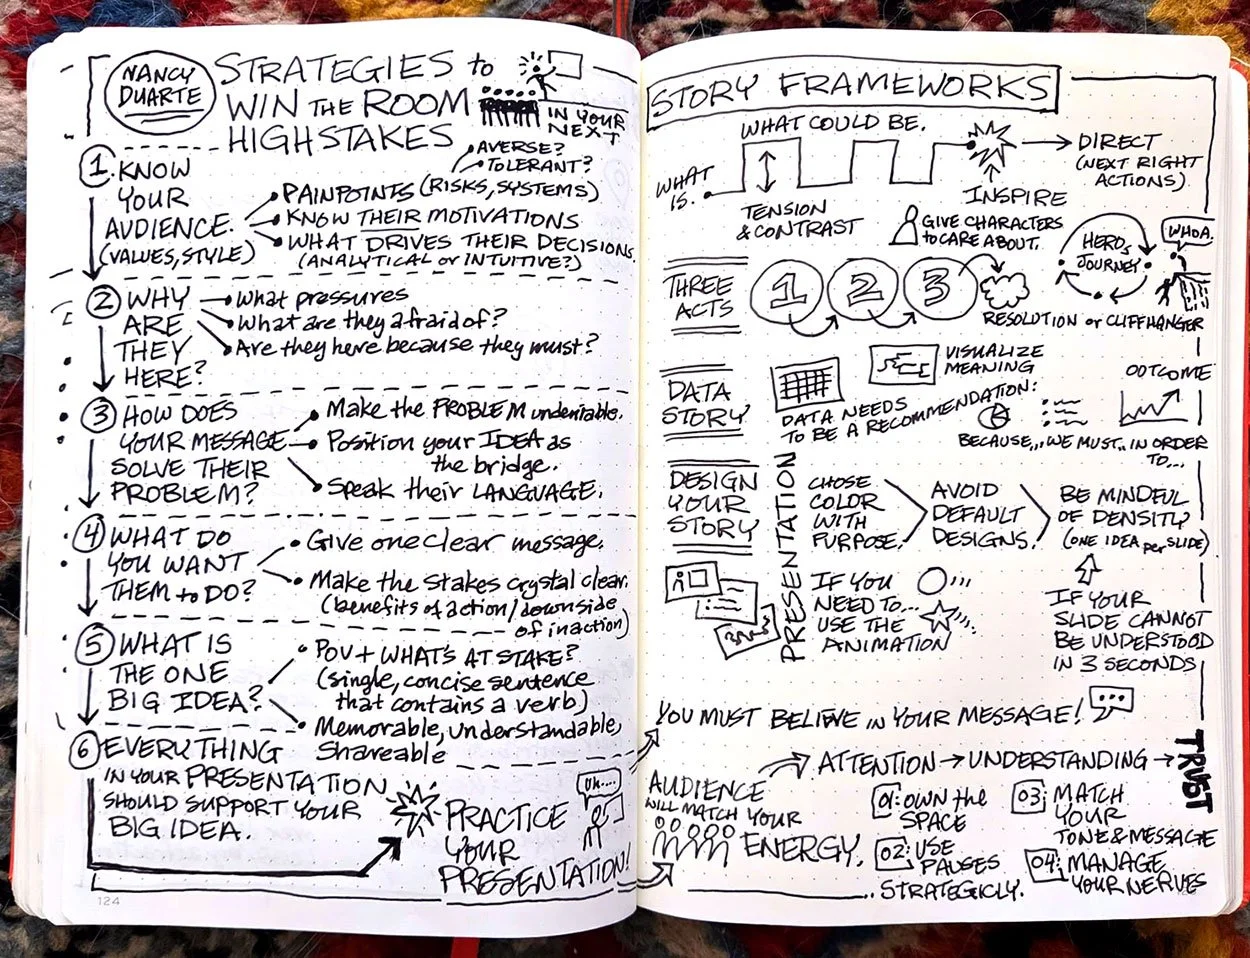 NANCY
DUARTE
STRATEGIES to
WIN THE ROOM
IN YOUR
NEXT
HIGHSTAKES
1 KNOW
YOUR
AUDIENCE.
(VALUES, STYLE)
• AVERSE?
• TOLERANT?
• PAINPOINTS (RISKS, SYSTEMS)
• KNOW THEIR MOTIVATIONS
• WHAT DRIVES THEIR DECISIONS
(ANALYTICAL OR INTUITIVE?)
2 WHY
ARE
THEY
HERE?
• What pressures
• What are they afraid of?
• Are they here because they must?
3 HOW DOES
YOUR MESSAGE
SOLVE THEIR
PROBLEM?
• Make the PROBLEM undeniable.
• Position your IDEA as
the bridge.
• Speak their LANGUAGE.
4 WHAT DO
YOU WANT
THEM to DO?
• Give one clear message.
• Make the stakes crystal clear.
(benefits of action/downside
of inaction)
5 WHAT IS
THE ONE
BIG IDEA?
• POV + WHAT'S AT STAKE?
(single, concise sentence
that contains a verb)
• Memorable, understandable,
Shareable
6 EVERYTHING
IN YOUR PRESENTATION
SHOULD SUPPORT YOUR
BIG IDEA.
UH....
PRACTICE
YOUR
PRESENTATION!
124
STORY FRAMEWORKS
WHAT COULD BE.
WHAT
IS.
TENSION
& CONTRAST
INSPIRE
DIRECT
(NEXT RIGHT
ACTIONS)
GIVE CHARACTERS
to CARE ABOUT.
HERO'S
JOURNEY
WHOA.
THREE
ACTS
1 2 3
RESOLUTION or CLIFFHANGER
DATA
STORY
VISUALIZE
MEANING
DATA NEEDS
TO BE A RECOMMENDATION:
OUTCOME
BECAUSE... WE MUST... IN ORDER
TO...
DESIGN
YOUR
STORY
PRESENTATION
CHOSE
COLOR
WITH
PURPOSE.
AVOID
DEFAULT
DESIGNS.
BE MINDFUL
OF DENSITY
(ONE IDEA per SLIDE)
IF YOU
NEED TO...
USE THE
ANIMATION
IF YOUR
SLIDE CANNOT
BE UNDERSTOOD
IN 3 SECONDS
YOU MUST BELIEVE IN YOUR MESSAGE!
AUDIENCE
WILL MATCH YOUR
ENERGY.
ATTENTION → UNDERSTANDING →
TRUST
01: OWN the
SPACE
02: USE
PAUSES
STRATEGICLY.
03: MATCH
YOUR
TONE & MESSAGE
04: MANAGE
YOUR NERVES